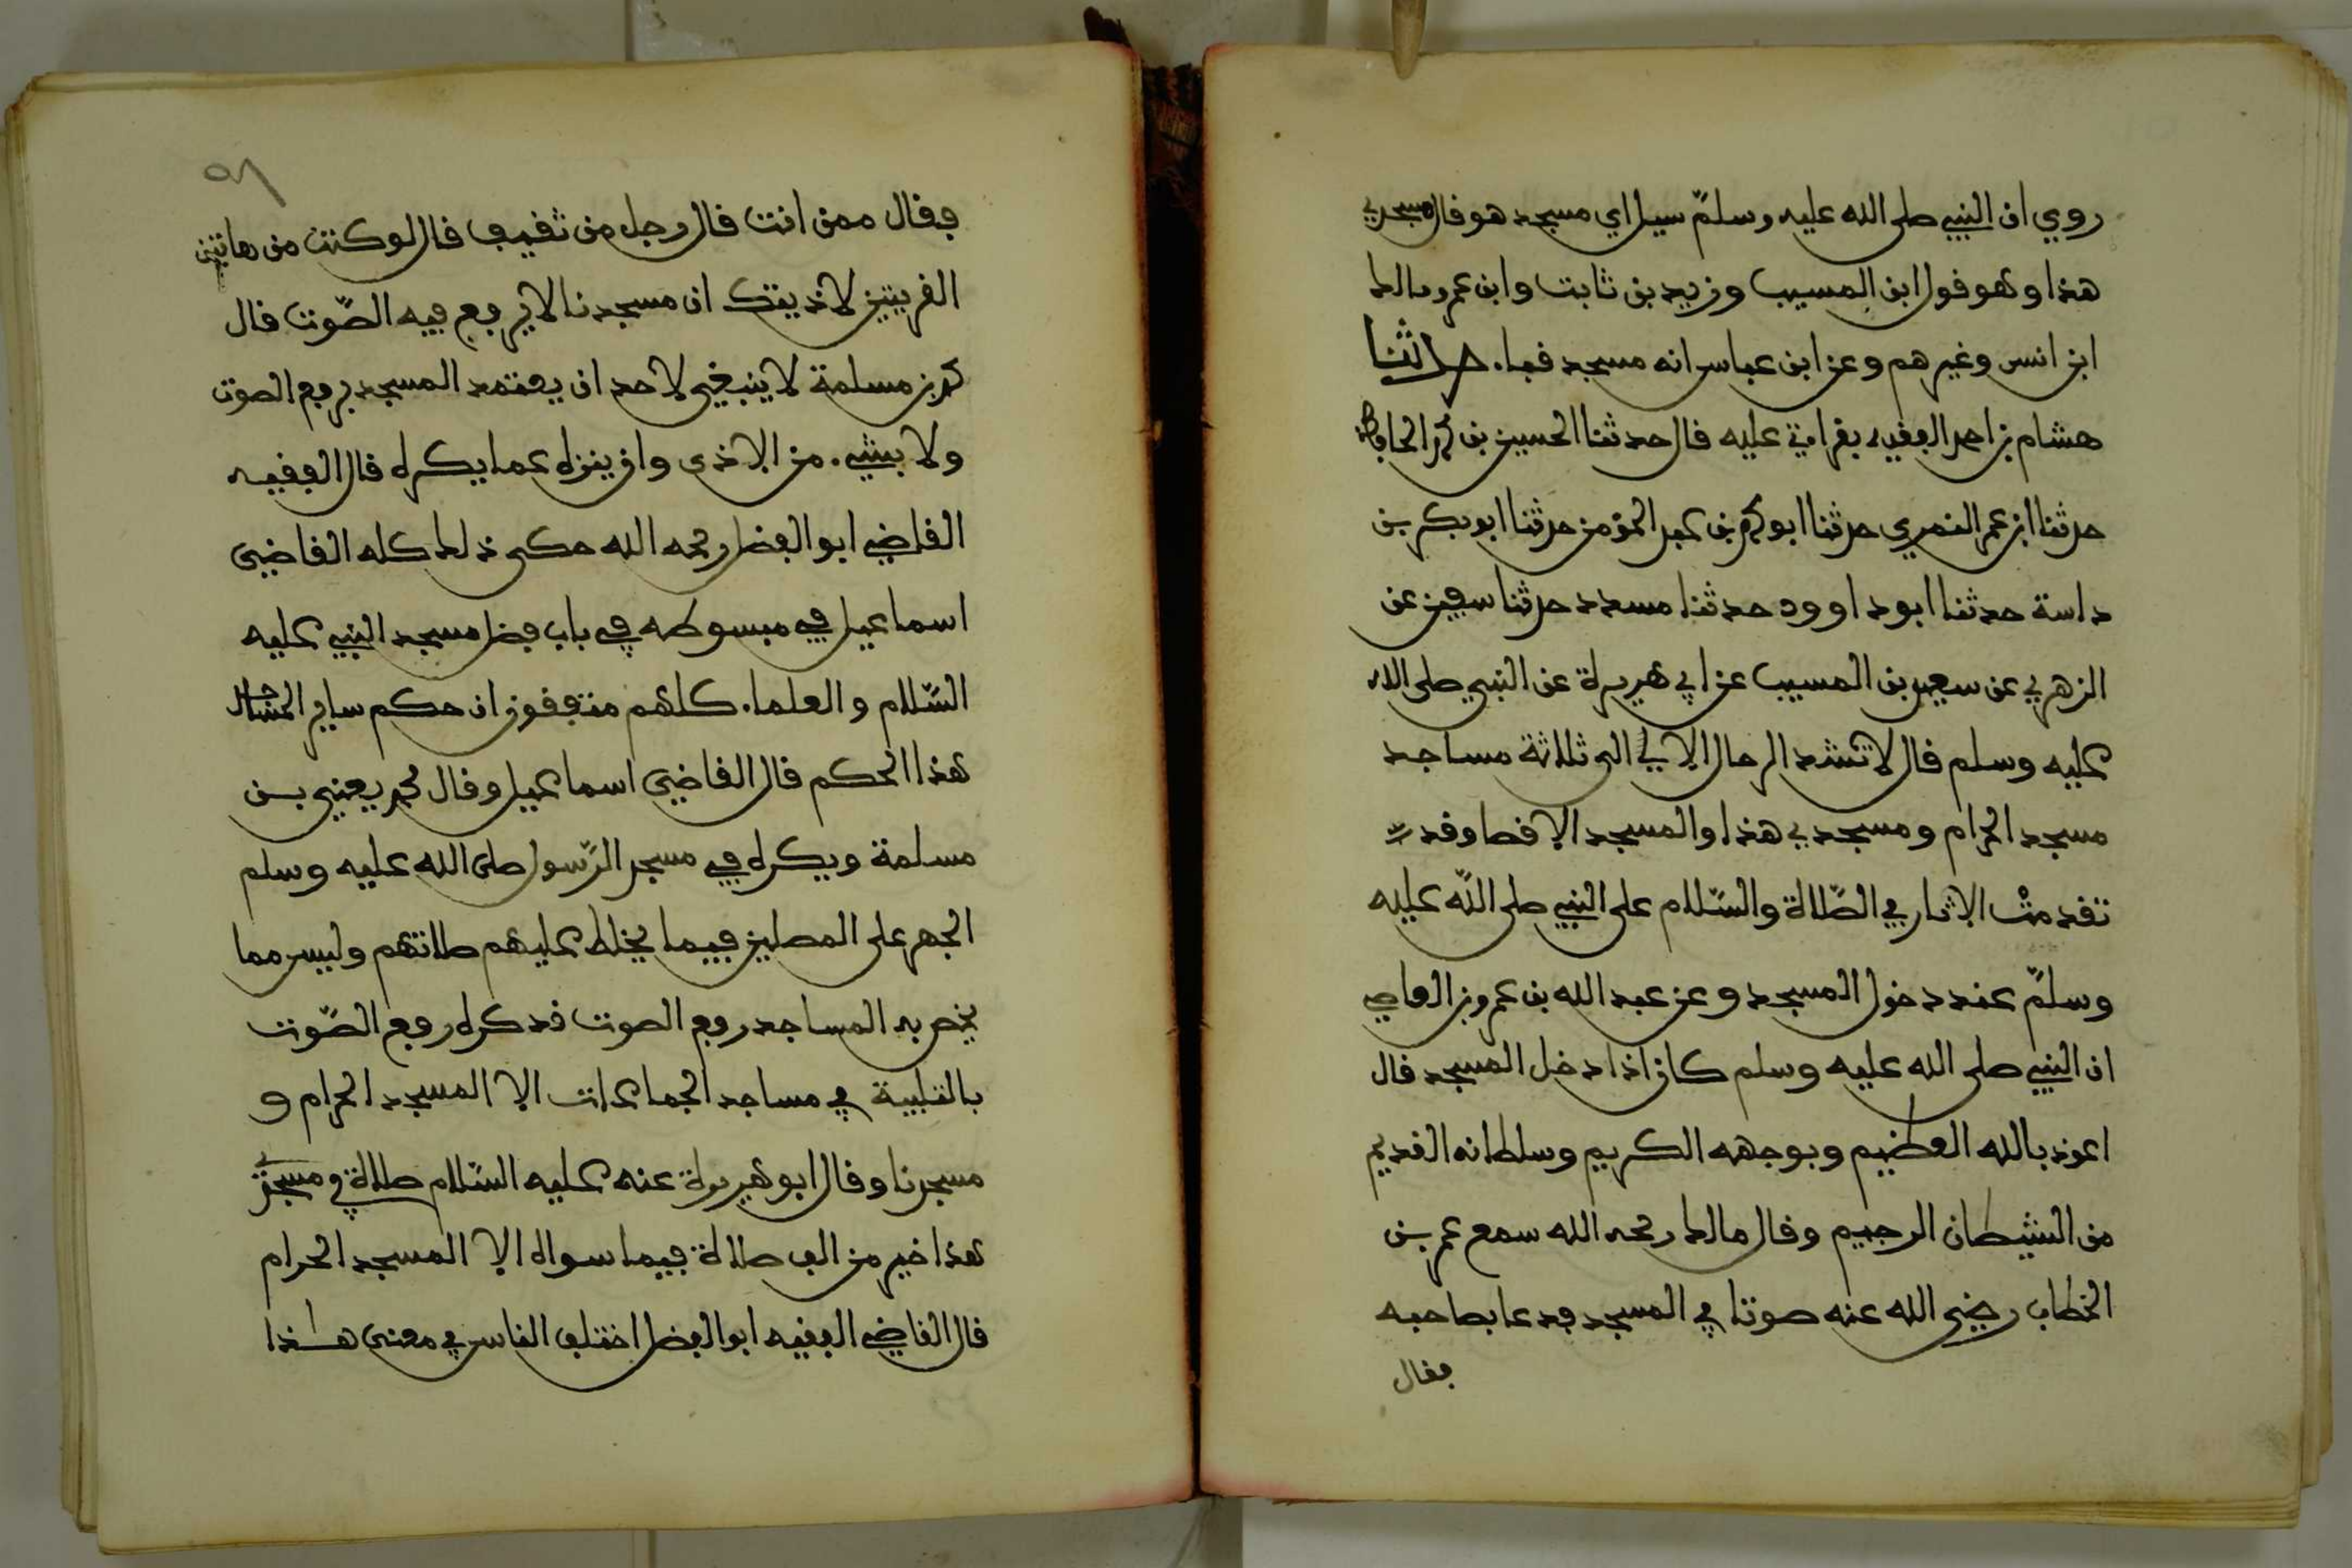 روي ان النبي صلى الله عليه وسلم سيل اي مسجد هو قال مسجدي
هذا وهو قول ابن المسيب وزيد بن ثابت وابن عمر ومالك
ابن انس وغيرهم وعن ابن عباس انه مسجد قبا. حدثنا
هشام بن احمد الفقيه بقراءتي عليه قال حدثنا الحسين بن محمد الحافظ
حدثنا ابن عمر النمري حدثنا ابو محمد بن عبد المؤمن حدثنا ابو بكر بن
داسة حدثنا ابو داوود حدثنا مسدد حدثنا سفين عن
الزهري عن سعيد بن المسيب عن ابي هريرة عن النبي صلى الله
عليه وسلم قال لا تشد الرحال الا الى ثلاثة مساجد
مسجد الحرام ومسجدي هذا والمسجد الاقصا وقد
تقدمت الاثار في الصّلاة والسّلام على النبي صلى اللّه عليه
وسلمّ عند دخول المسجد وعن عبد الله بن عمرو بن العاصي
ان النبي صلى الله عليه وسلم كان اذا دخل المسجد قال
اعوذ بالله العظيم وبوجهه الكريم وسلطانه القديم
من الشيطان الرجيم وقال مالك رحمه الله سمع عمر بن
الخطاب رضي الله عنه صوتا في المسجد فدعا بصاحبه
فقال
٥٨
فقال ممن انت قال رجل من ثقيف قال لو كنت من هاتين
القريتين لاذيتك ان مسجدنا لا يرفع فيه الصّوت قال
محمد بن مسلمة لا ينبغي لاحد ان يعتمد المسجد برفع الصوت
ولا بشيء. من الاذى وان ينزه عما يكره قال الفقيه
القاضي ابو الفضل رحمه الله حكى ذلك كله القاضي
اسماعيل في مبسوطه في باب فضل مسجد النبي عليه
السّلام والعلما. كلهم متفقون ان حكم ساير المساجد
هذا الحكم قال القاضي اسماعيل وقال محمد يعني بن
مسلمة ويكره في مسجد الرّسول صلى الله عليه وسلم
الجهر على المصلين فيما يخلط عليهم صلاتهم وليس مما
يخص به المساجد رفع الصوت قد كره رفع الصّوت
بالتلبية في مساجد الجماعات الا المسجد الحرام و
مسجدنا وقال ابو هريرة عنه عليه السّلام صلاة في مسجدي
هذا خير من الف صلاة فيما سواه الا المسجد الحرام
قال القاضي الفقيه ابو الفضل اختلف الناس في معنى هذا